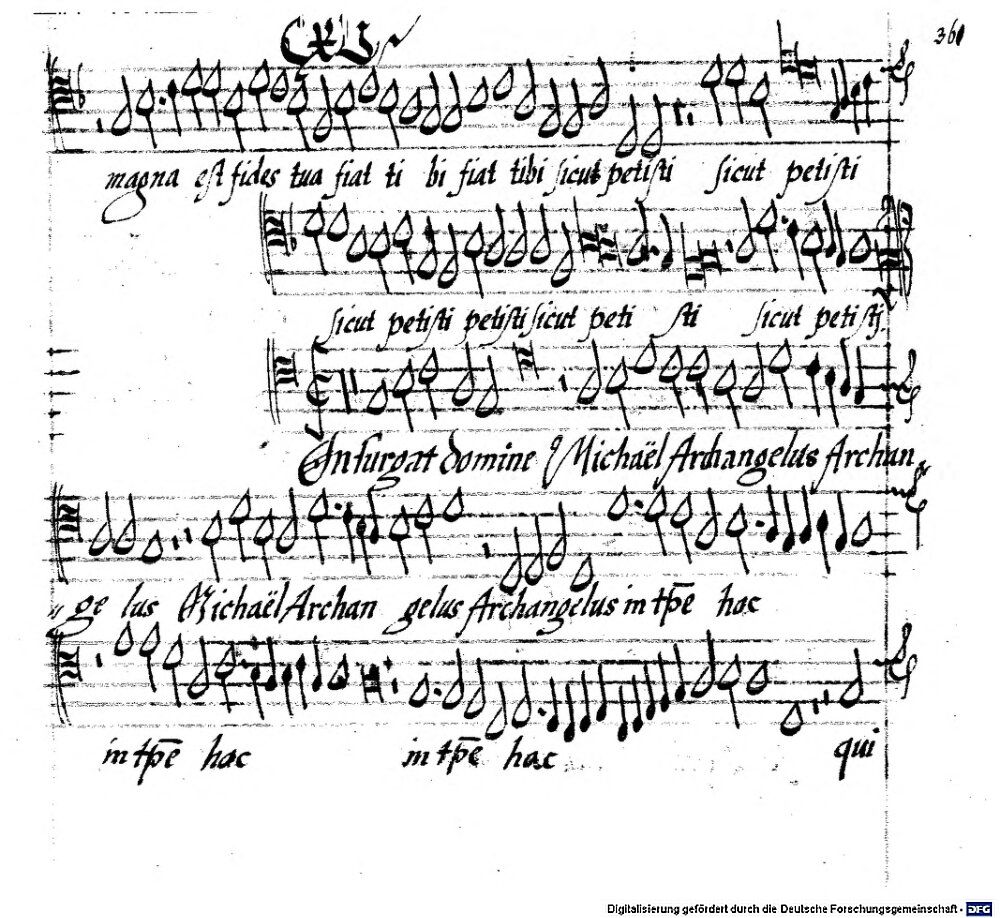 CXLV
361
magna est fides tua fiat ti bi fiat tibi sicut petisti sicut petisti
sicut petisti petisti sicut peti sti sicut petisti.
Insurgat domine Michaël Archangelus Archan
ge lus Michaël Archan gelus Archangelus in tp̄e hac
in tp̄e hac in tp̄e hac qui
Digitalisierung gefördert durch die Deutsche Forschungsgemeinschaft - DFG